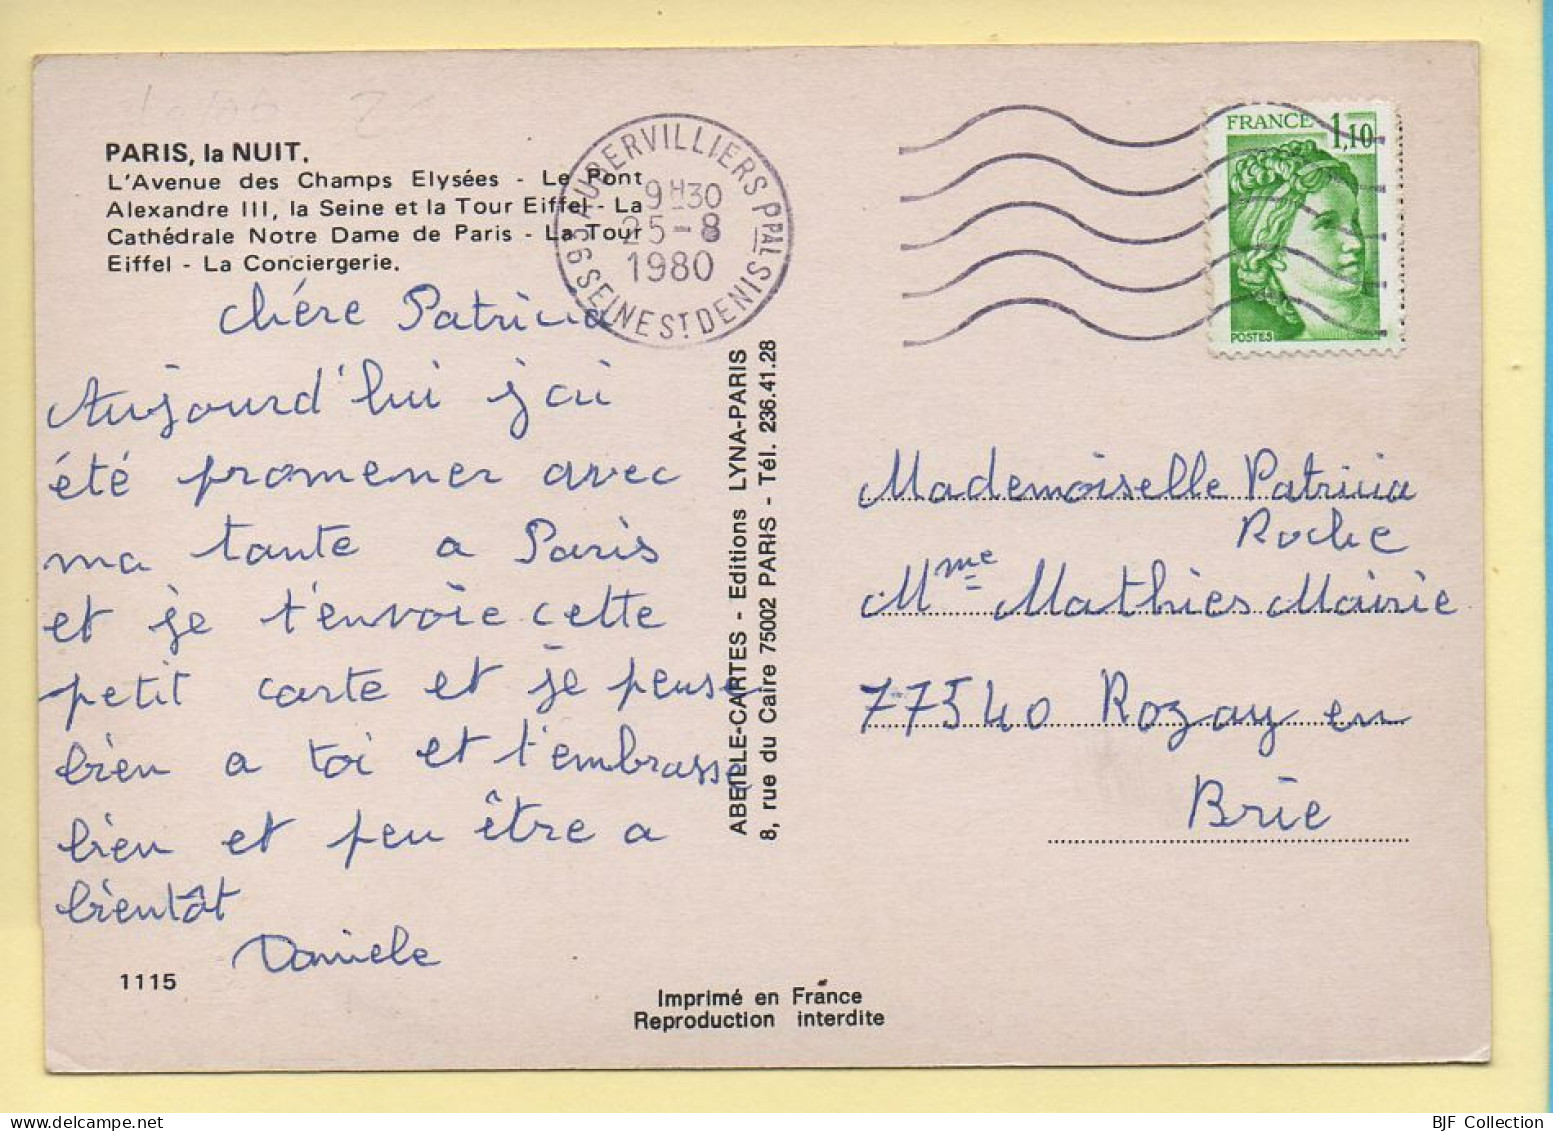 PARIS, la NUIT.
L'Avenue des Champs Elysées - Le Pont
Alexandre III, la Seine et la Tour Eiffel - La
Cathédrale Notre Dame de Paris - La Tour
Eiffel - La Conciergerie.
chére Patricia
Aujourd'hui j'ai
été promener avec
ma tante a Paris
et je t'envoie cette
petit carte et je pense
bien a toi et t'embrasse
bien et peu être a
bientôt
Daniele
1115
93 AUBERVILLIERS PPAL
9H30
25-8
1980
SEINE ST DENIS
ABEILLE-CARTES - Editions LYNA-PARIS
8, rue du Caire 75002 PARIS - Tél. 236.41.28
FRANCE 1,10
POSTES
Mademoiselle Patricia
Roche
Mme Mathies Mairie
77540 Rozay en
Brie
Imprimé en France
Reproduction interdite
BJF Collection